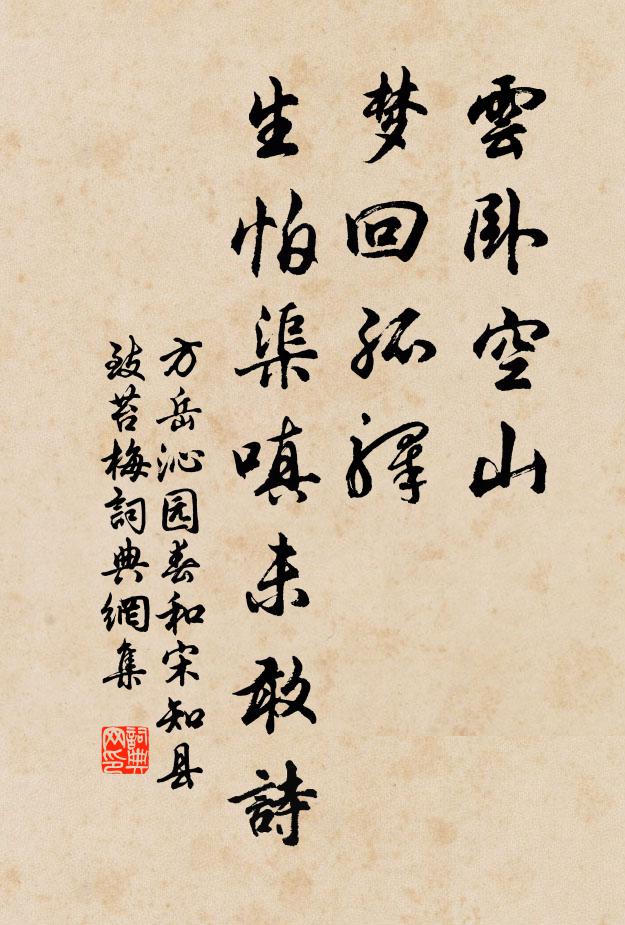 雲卧空山
梦回孤驿
生怕渠嗔未敢詩
方岳沁园春和宋知县
致苔梅詞典網集
詞典网印